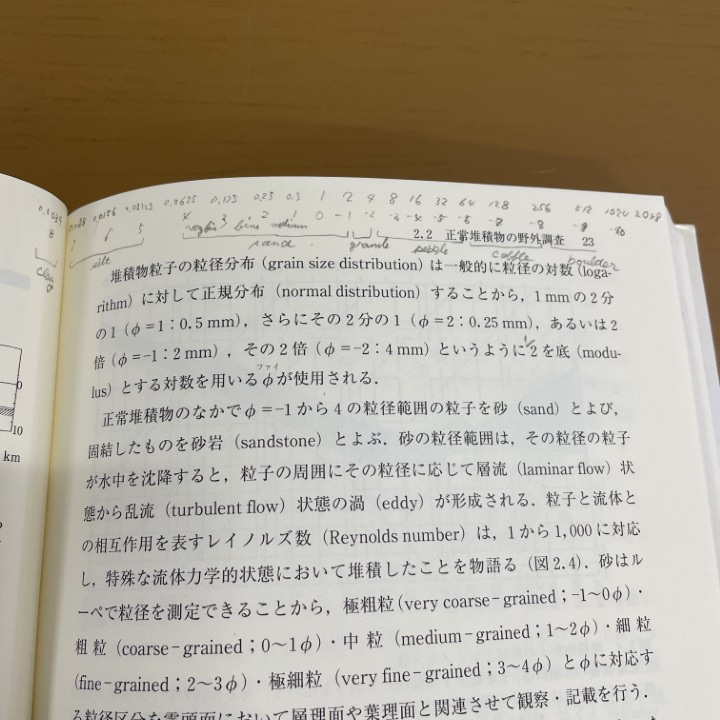 0.0625 0.125 0.25 0.5 1 2 4 8 16 32 64 128 256 512 1024 2048
8 7 6 5 4 3 2 1 0 -1 -2 -3 -4 -5 -6
clay silt sand granule pebble cobble boulder
2.2 正常堆積物の野外調査 23
堆積物粒子の粒径分布（grain size distribution）は一般的に粒径の対数（loga-
rithm）に対して正規分布（normal distribution）することから，1 mm の 2 分
の 1（φ=1：0.5 mm），さらにその 2 分の 1（φ=2：0.25 mm），あるいは 2
倍（φ=-1：2 mm），その 2 倍（φ=-2：4 mm）というように 1/2 を底（modu-
ファイ
lus）とする対数を用いるφが使用される．
正常堆積物のなかでφ=-1 から 4 の粒径範囲の粒子を砂（sand）とよび，
固結したものを砂岩（sandstone）とよぶ．砂の粒径範囲は，その粒径の粒子
が水中を沈降すると，粒子の周囲にその粒径に応じて層流（laminar flow）状
態から乱流（turbulent flow）状態の渦（eddy）が形成される．粒子と流体と
の相互作用を表すレイノルズ数（Reynolds number）は，1 から 1,000 に対応
し，特殊な流体力学的状態において堆積したことを物語る（図 2.4）．砂はル
ーペで粒径を測定できることから，極粗粒（very coarse-grained；-1〜0φ）・
粗粒（coarse-grained；0〜1φ）・中粒（medium-grained；1〜2φ）・細粒
（fine-grained；2〜3φ）・極細粒（very fine-grained；3〜4φ）とφに対応す
る粒径区分を露頭面において層理面や葉理面と関連させて観察・記載を行う．
0
10
km